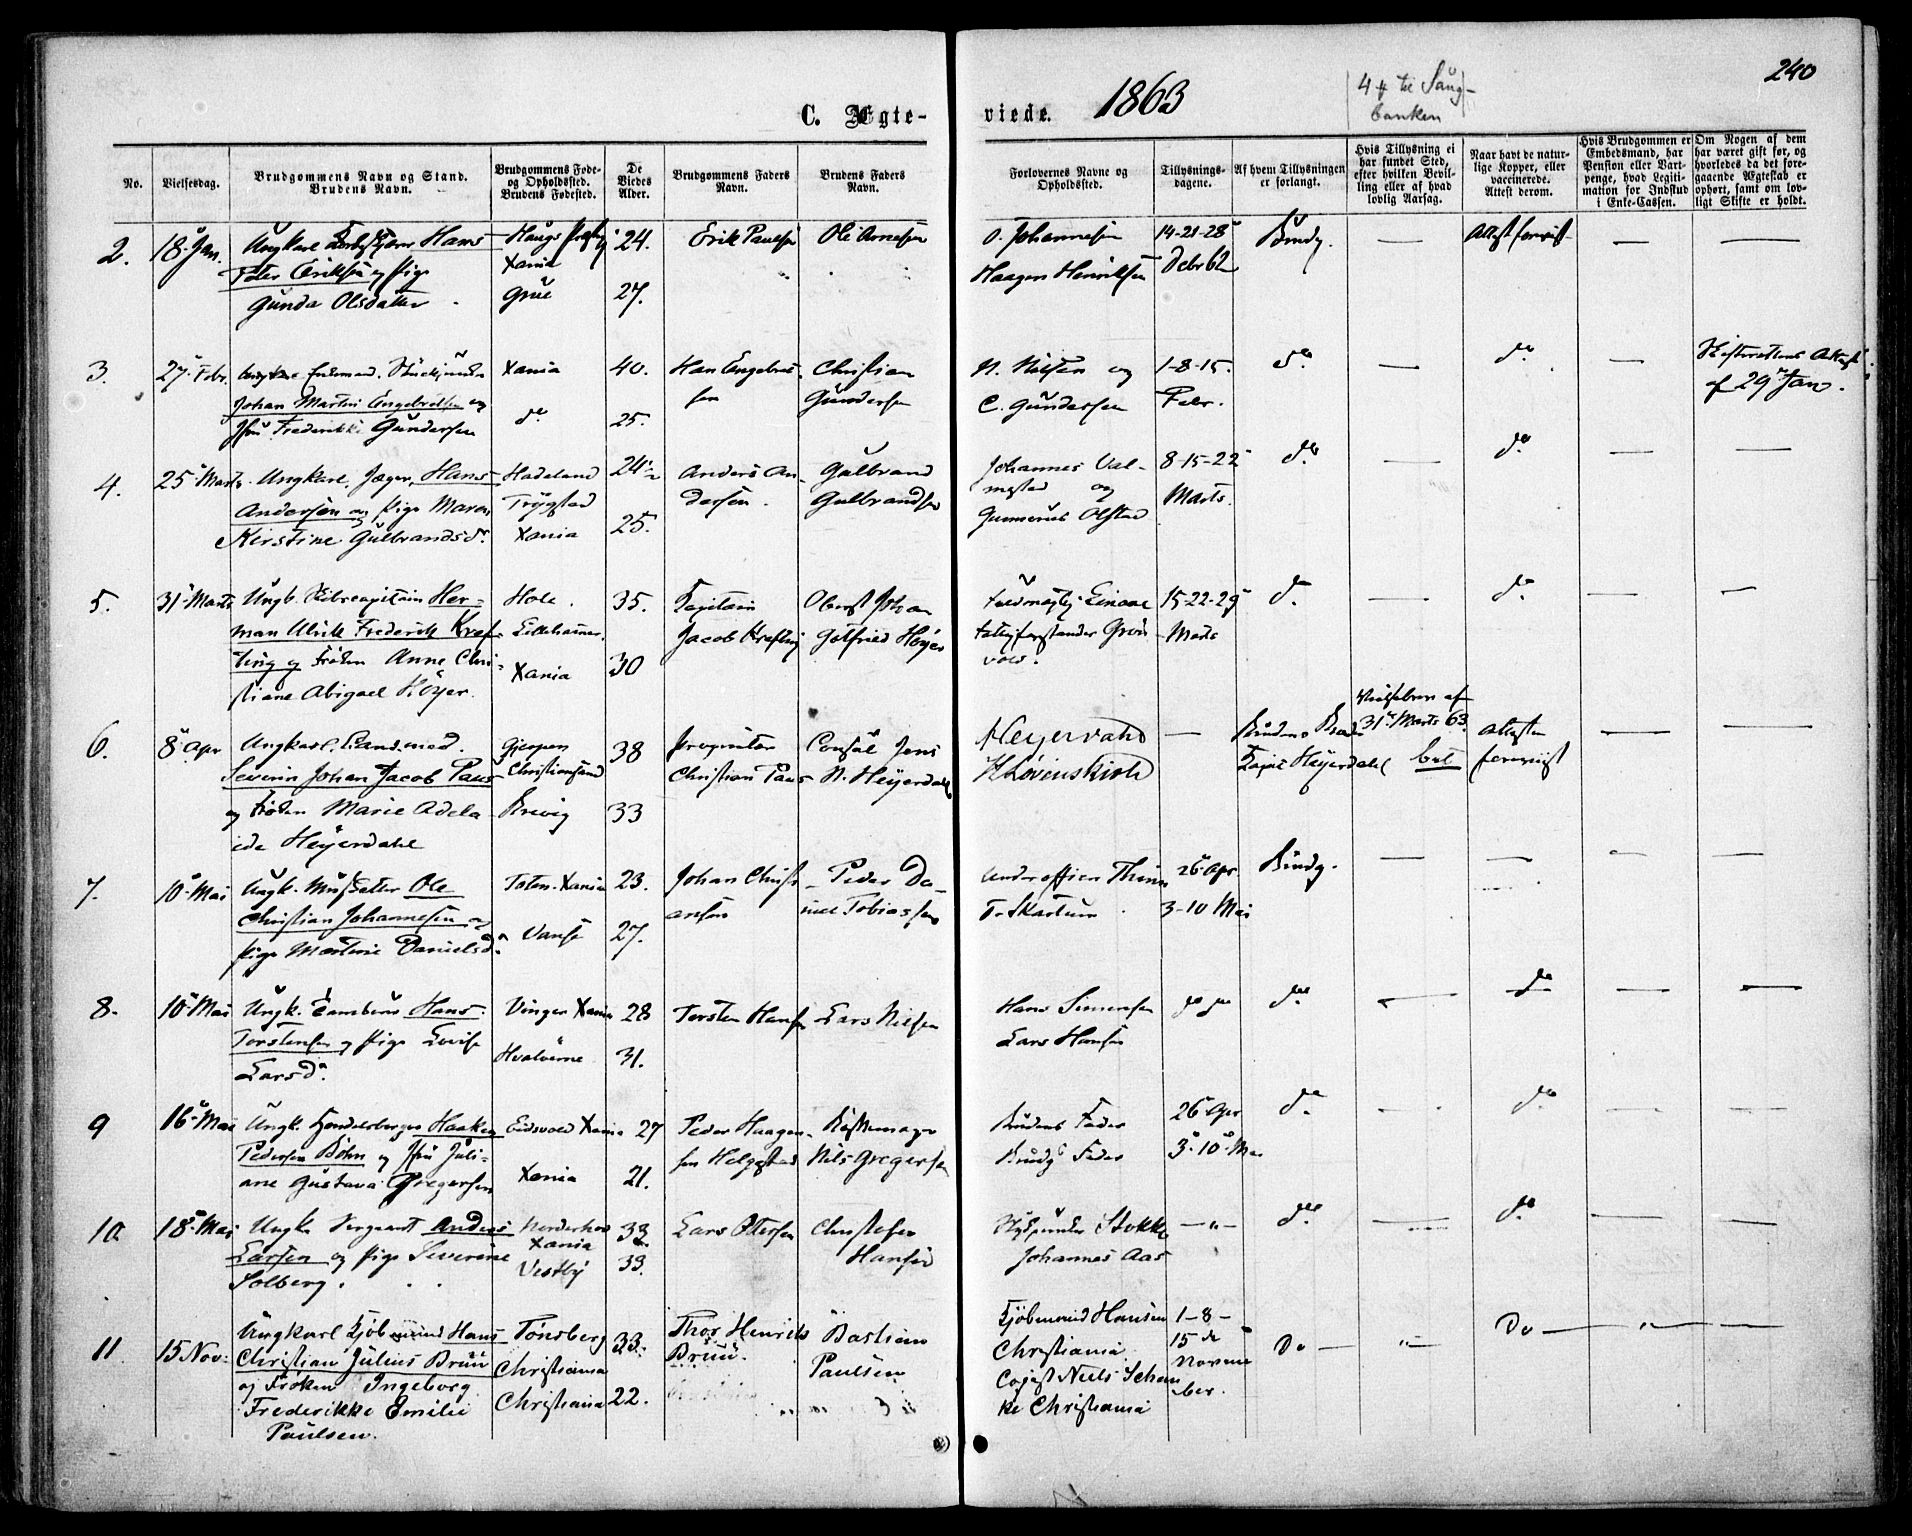 240
1863
4 til Saug-
banken
C. Ægte- viede.
No.
Vielsesdag.
Brudgommens Navn og Stand.
Brudens Navn.
Brudgommens Føde-
og Opholdssted.
Brudens Fødested.
De
Viedes
Alder.
Brudgommens Faders
Navn.
Brudens Faders
Navn.
Forlovernes Navne og
Opholdssted.
Tillysnings-
dagene.
Af hvem Tillysningen
er forlangt.
Hvis Tillysning ei
har fundet Sted,
efter hvilken Bevil-
ling eller af hvad
lovlig Aarsag.
Naar havt de natur-
lige Kopper, eller
vaccinerede.
Attest derom.
Hvis Brudgommen er
Embedsmand, har
Pension eller Vart-
penge, hvad Legiti-
mation for Indskud
i Enke-Cassen.
Om Nogen af dem
har været gift før, og
hvorledes da det fore-
gaaende Ægteskab er
ophørt, samt om lov-
ligt Skifte er holdt.
2. 18 Jan. Ungkarl Hans
Peter Eriksen og Pige
Gunda Olsdatter
Haugs
Xania
Grue
24.
27.
Erik Paulsen
Ole Arnesen
O. Johannesen
Haagen Henriksen
14-21-28
Debr 62
Brudg.
Attest forevist
3. 27 Febr.
Johan Martin Engebretsen og
Jfru Frederikke Gundersen
Xania
do
40.
25.
Hans Engebret-
sen
Christian
Gundersen
N. Nilsen og
C. Gundersen
1-8-15.
Febr.
do
do
Skifterettens Attest
af 29 Jan.
4. 25 Marts Ungkarl, Jæger, Hans
Andersen og Pige Maren
Kirstine Gulbrandsd.
Hadeland
Trygstad
Xania
24 1/2
25.
Anders An-
dersen.
Gulbrand
Gulbrandsen
Johannes Val-
mestad og
Gunnerus Olstad
8-15-22
Marts.
do
do
5. 31 Marts Ungk. Her-
man Ulrik Frederik Kref-
ting og Frøken Anne Chri-
stiane Abigael Höyer.
Hole.
Lillehamer.
Xania
35.
30
Kapitain
Jacob Krefting
Oberst Johan
Gotfried Höyer
Grön
vold.
15-22-29
Marts
do
do
6. 8 Apr Ungkarl,
Severin Johan Jacob Paus
og Frøken Marie Adela
ide Heyerdahl
Gjerpen
Christiansand
Brevig
38
33
Proprietær
Christian Paus
Consul Jens
N. Heyerdahl
Heyerdahl
H Løvenskiold
Brudens
Heyerdahl
31 Marts 63.
Attester
forevist
7. 10 Mai Ungk. Ole
Christian Johannesen og
Pige Martine Danielsd.
Toten. Xania
Vanse
23.
27.
Johan Christi
ansen
Peder Da-
niel Tobiassen
Underofficer
T. Skartum
26 Apr
3-10 Mai
Brudg.
8. 10 Mai Ungk. Tambour Hans
Torstensen og Pige Lovise
Larsd.
Vinger Xania
28
31.
Torsten Hansen
Lars Nilsen
Hans Simensen
Lars Hansen
do do
do
do
9 16 Mai Ungk. Haaken
Pedersen Böhn og Jfru Juli-
ane Gustava Gregersen
Eidsvold Xania
Xania
27
21.
Peder Haagen-
sen Helgestad
Nils Gregersen
Brudens Fader
Brudg Fader
26 Apr
3-10 Mai
do
do
10. 18 Mai Ungk. Sergeant Anders
Larsen og Pige Severine
Solberg.
Norderhov
Xania
Vestby
33
33.
Lars Ottersen
Christofer
Hansen
Stokke
Johannes Aas
do
do
11 15 Nov: Ungkarl Kjöbmand Hans
Christian Julius Bruu
og Frøken Ingeborg
Frederikke Emilie
Paulsen.
Tønsberg
Christiania
Christiania
33.
22.
Thor Henrik
Bruu.
Bastian
Paulsen
Kjöbmand Hansen
Christiania
Niels Schan
ke Christiania
1-8-
15 de
Novem
ber.
Do
Do